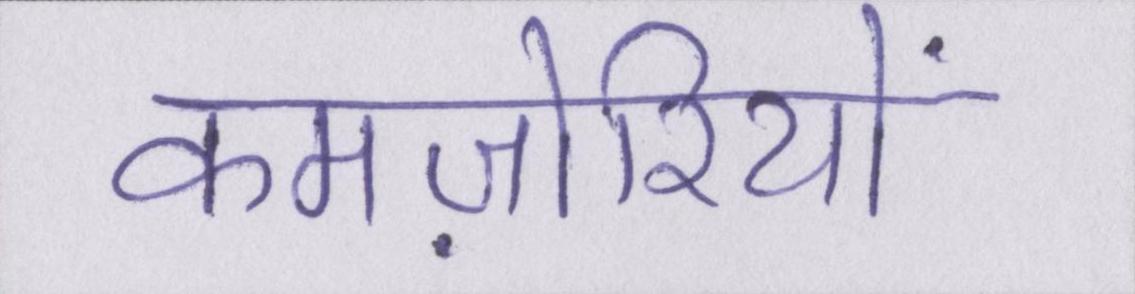 कमज़ोरियों